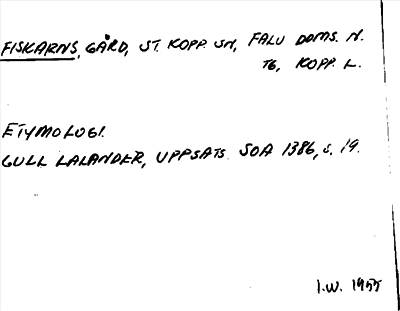 FISKARNS, GÅRD, ST. KOPP. SN, FALU DOMS. N.
TG, KOPP. L.
ETYMOLOGI.
GULL LALANDER, UPPSATS SOA 1386, S. 19.
I.W. 1955